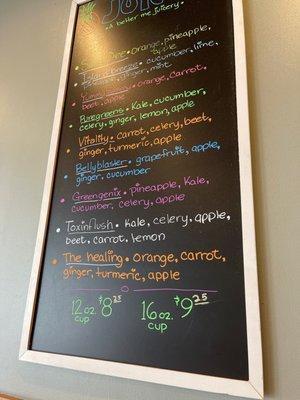 A better me juicery
Orange, pineapple,
apple
Island Breeze • cucumber, lime,
ginger, mint
Orange, Carrot,
beet, apple
Puregreens • Kale, cucumber,
celery, ginger, lemon, apple
Vitality • carrot, celery, beet,
ginger, turmeric, apple
Bellyblaster • grapefruit, apple,
ginger, cucumber
Greengenix • pineapple, Kale,
cucumber, celery, apple
Toxinflush • Kale, celery, apple,
beet, carrot, lemon
The healing • Orange, carrot,
ginger, turmeric, apple
12oz. cup $8.25
16oz. cup $9.25